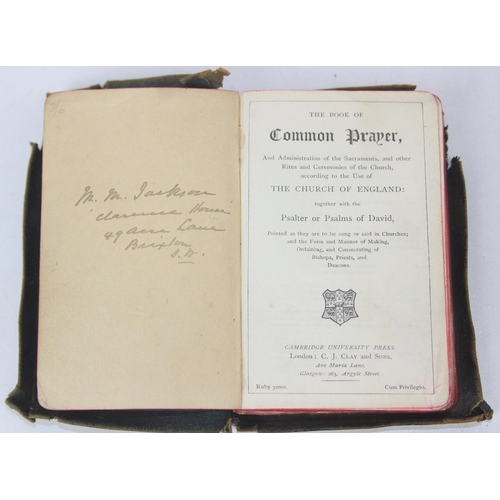 M. M. Jackson
Clarence House
49 Acre Lane
Brixton
S.W.
THE BOOK OF
Common Prayer,
And Administration of the Sacraments, and other
Rites and Ceremonies of the Church,
according to the Use of
THE CHURCH OF ENGLAND:
together with the
Psalter or Psalms of David,
Pointed as they are to be sung or said in Churches;
and the Form and Manner of Making,
Ordaining, and Consecrating of
Bishops, Priests, and
Deacons.
CAMBRIDGE UNIVERSITY PRESS
London: C. J. CLAY and SONS,
Ave Maria Lane.
Glasgow: 263, Argyle Street.
Ruby 32mo.
Cum Privilegio.